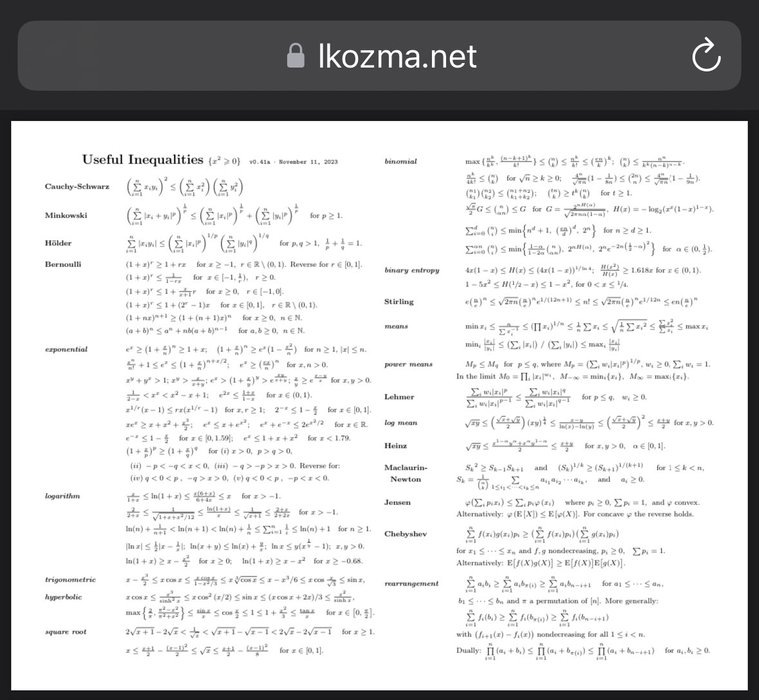 lkozma.net
Useful Inequalities {x² ⩾ 0} v0.41a · November 11, 2023
Cauchy-Schwarz (∑_{i=1}^n x_i y_i)² ≤ (∑_{i=1}^n x_i²)(∑_{i=1}^n y_i²)
Minkowski (∑_{i=1}^n |x_i + y_i|^p)^{1/p} ≤ (∑_{i=1}^n |x_i|^p)^{1/p} + (∑_{i=1}^n |y_i|^p)^{1/p} for p ≥ 1.
Hölder ∑_{i=1}^n |x_i y_i| ≤ (∑_{i=1}^n |x_i|^p)^{1/p} (∑_{i=1}^n |y_i|^q)^{1/q} for p, q > 1, 1/p + 1/q = 1.
Bernoulli (1 + x)^r ≥ 1 + rx for x ≥ −1, r ∈ ℝ \ (0, 1). Reverse for r ∈ [0, 1].
(1 + x)^r ≤ 1/(1−rx) for x ∈ [−1, 1/r), r ≥ 0.
(1 + x)^r ≤ 1 + x/(x+1) r for x ≥ 0, r ∈ [−1, 0].
(1 + x)^r ≤ 1 + (2^r − 1)x for x ∈ [0, 1], r ∈ ℝ \ (0, 1).
(1 + nx)^{n+1} ≥ (1 + (n + 1)x)^n for x ≥ 0, n ∈ ℕ.
(a + b)^n ≤ a^n + nb(a + b)^{n−1} for a, b ≥ 0, n ∈ ℕ.
exponential e^x ≥ (1 + x/n)^n ≥ 1 + x; (1 + x/n)^n ≥ e^x(1 − x²/n) for n ≥ 1, |x| ≤ n.
x^n/n! + 1 ≤ e^x ≤ (1 + x/n)^{n+x/2}; e^x ≥ (ex/n)^n for x, n > 0.
x^y + y^x > 1; x^y > x/(x+y); e^x > (1 + x/y)^y > e^{xy/(x+y)}; x/y ≥ e^{(x−y)/x} for x, y > 0.
1/(2−x) < x^x < x² − x + 1; e^{2x} ≤ (1+x)/(1−x) for x ∈ (0, 1).
x^{1/r}(x − 1) ≤ rx(x^{1/r} − 1) for x, r ≥ 1; 2^{−x} ≤ 1 − x/2 for x ∈ [0, 1].
xe^x ≥ x + x² + x³/2; e^x ≤ x + e^{x²}; e^x + e^{−x} ≤ 2e^{x²/2} for x ∈ ℝ.
e^{−x} ≤ 1 − x/2 for x ∈ [0, 1.59]; e^x ≤ 1 + x + x² for x < 1.79.
(1 + x/p)^p ≥ (1 + x/q)^q for (i) x > 0, p > q > 0,
(ii) − p < −q < x < 0, (iii) − q > −p > x > 0. Reverse for:
(iv) q < 0 < p , −q > x > 0, (v) q < 0 < p , −p < x < 0.
logarithm x/(1+x) ≤ ln(1 + x) ≤ x(6+x)/(6+4x) ≤ x for x > −1.
2/(2+x) ≤ 1/√(1+x+x²/12) ≤ ln(1+x)/x ≤ 1/√(x+1) ≤ (2+x)/(2+2x) for x > −1.
ln(n) + 1/(n+1) < ln(n + 1) < ln(n) + 1/n ≤ ∑_{i=1}^n 1/i ≤ ln(n) + 1 for n ≥ 1.
|ln x| ≤ ½|x − 1/x|; ln(x + y) ≤ ln(x) + y/x; ln x ≤ y(x^{1/y} − 1); x, y > 0.
ln(1 + x) ≥ x − x²/2 for x ≥ 0; ln(1 + x) ≥ x − x² for x ≥ −0.68.
trigonometric x − x³/2 ≤ x cos x ≤ x cos x/(1−x²/3) ≤ x ∛(cos x) ≤ x − x³/6 ≤ x cos x/√3 ≤ sin x,
hyperbolic x cos x ≤ x³/sinh² x ≤ x cos²(x/2) ≤ sin x ≤ (x cos x + 2x)/3 ≤ x²/sinh x,
max{2/π, (π²−x²)/(π²+x²)} ≤ sin x/x ≤ cos x/2 ≤ 1 ≤ 1 + x²/3 ≤ tan x/x for x ∈ [0, π/2].
square root 2√(x + 1) − 2√x < 1/√x < √(x + 1) − √(x − 1) < 2√x − 2√(x − 1) for x ≥ 1.
x ≤ (x+1)/2 − (x−1)²/2 ≤ √x ≤ (x+1)/2 − (x−1)²/8 for x ∈ [0, 1].
binomial max{n^k/k^k, (n−k+1)^k/k!} ≤ (n choose k) ≤ n^k/k! ≤ (en/k)^k; (n choose k) ≤ n^n/(k^k(n−k)^{n−k}).
n^k/4k! ≤ (n choose k) for √n ≥ k ≥ 0; 4^n/√(πn) (1 − 1/8n) ≤ (2n choose n) ≤ 4^n/√(πn) (1 − 1/9n).
(n₁ choose k₁)(n₂ choose k₂) ≤ (n₁+n₂ choose k₁+k₂); (tn choose k) ≥ t^k (n choose k) for t ≥ 1.
√π/2 G ≤ (n choose αn) ≤ G for G = 2^{nH(α)}/√(2πnα(1−α)), H(x) = − log₂(x^x(1−x)^{1−x}).
∑_{i=0}^d (n choose i) ≤ min{n^d + 1, (en/d)^d, 2^n} for n ≥ d ≥ 1.
∑_{i=0}^{αn} (n choose i) ≤ min{(1−α)/(1−2α) (n choose αn), 2^{nH(α)}, 2^n e^{−2n(½−α)²} } for α ∈ (0, ½).
binary entropy 4x(1 − x) ≤ H(x) ≤ (4x(1 − x))^{1/ln 4}; H(x²)/H(x) ≥ 1.618x for x ∈ (0, 1).
1 − 5x² ≤ H(1/2 − x) ≤ 1 − x², for 0 < x ≤ 1/4.
Stirling e(n/e)^n ≤ √(2πn)(n/e)^n e^{1/(12n+1)} ≤ n! ≤ √(2πn)(n/e)^n e^{1/12n} ≤ en(n/e)^n
means min x_i ≤ n/∑x_i^{−1} ≤ (∏ x_i)^{1/n} ≤ 1/n ∑ x_i ≤ √(1/n ∑ x_i²) ≤ ∑x_i²/∑x_i ≤ max x_i
min_i |x_i|/|y_i| ≤ (∑_i |x_i|) / (∑_i |y_i|) ≤ max_i |x_i|/|y_i|
power means M_p ≤ M_q for p ≤ q, where M_p = (∑_i w_i|x_i|^p)^{1/p}, w_i ≥ 0, ∑_i w_i = 1.
In the limit M₀ = ∏_i |x_i|^{w_i}, M_{−∞} = min_i{x_i}, M_∞ = max_i{x_i}.
Lehmer ∑_i w_i|x_i|^p/∑_i w_i|x_i|^{p−1} ≤ ∑_i w_i|x_i|^q/∑_i w_i|x_i|^{q−1} for p ≤ q, w_i ≥ 0.
log mean √(xy) ≤ ((√x+√y)/2)(xy)^{1/4} ≤ (x−y)/(ln(x)−ln(y)) ≤ ((√x+√y)/2)² ≤ (x+y)/2 for x, y > 0.
Heinz √(xy) ≤ (x^{1−α}y^α+x^αy^{1−α})/2 ≤ (x+y)/2 for x, y > 0, α ∈ [0, 1].
Maclaurin-
Newton S_k² ≥ S_{k−1}S_{k+1} and (S_k)^{1/k} ≥ (S_{k+1})^{1/(k+1)} for 1 ≤ k < n,
S_k = 1/(n choose k) ∑_{1≤i₁<···<i_k≤n} a_{i₁}a_{i₂} ··· a_{i_k}, and a_i ≥ 0.
Jensen φ(∑_i p_i x_i) ≤ ∑_i p_i φ(x_i) where p_i ≥ 0, ∑ p_i = 1, and φ convex.
Alternatively: φ(E[X]) ≤ E[φ(X)]. For concave φ the reverse holds.
Chebyshev ∑_{i=1}^n f(x_i)g(x_i)p_i ≥ (∑_{i=1}^n f(x_i)p_i)(∑_{i=1}^n g(x_i)p_i)
for x₁ ≤ ··· ≤ x_n and f, g nondecreasing, p_i ≥ 0, ∑ p_i = 1.
Alternatively: E[f(X)g(X)] ≥ E[f(X)]E[g(X)].
rearrangement ∑_{i=1}^n a_i b_i ≥ ∑_{i=1}^n a_i b_{π(i)} ≥ ∑_{i=1}^n a_i b_{n−i+1} for a₁ ≤ ··· ≤ a_n,
b₁ ≤ ··· ≤ b_n and π a permutation of [n]. More generally:
∑_{i=1}^n f_i(b_i) ≥ ∑_{i=1}^n f_i(b_{π(i)}) ≥ ∑_{i=1}^n f_i(b_{n−i+1})
with (f_{i+1}(x) − f_i(x)) nondecreasing for all 1 ≤ i < n.
Dually: ∏_{i=1}^n (a_i + b_i) ≤ ∏_{i=1}^n (a_i + b_{π(i)}) ≤ ∏_{i=1}^n (a_i + b_{n−i+1}) for a_i, b_i ≥ 0.